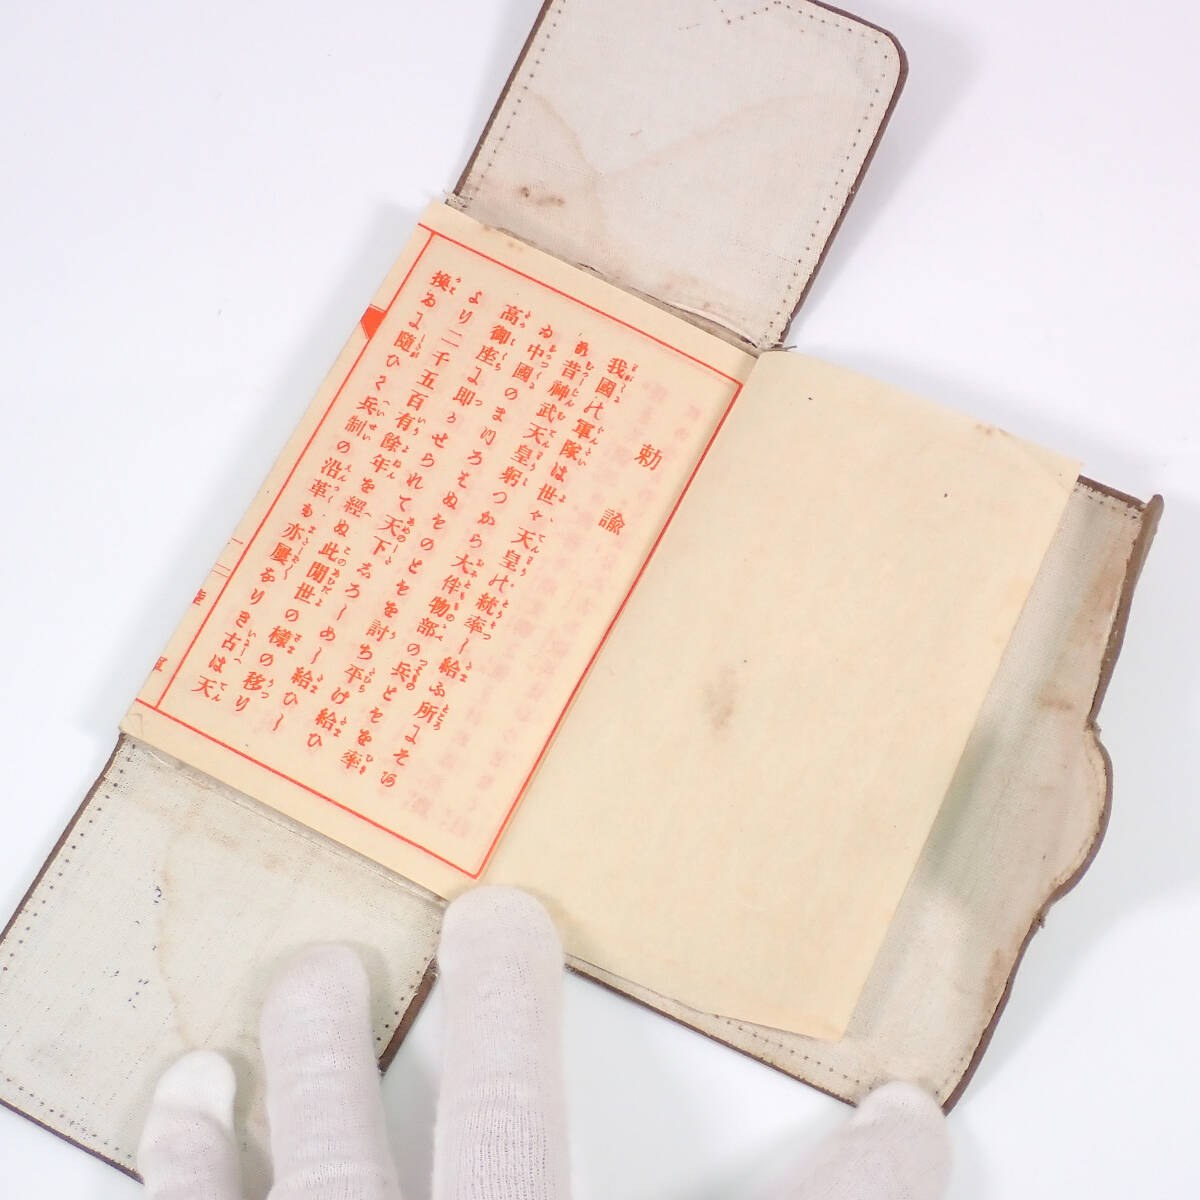 勅諭
我國の軍隊は世々天皇の統率し給ふ所にそあ
る昔神武天皇躬つから大伴物部の兵ともを率
ゐ中國のまつろはぬものともを討ち平け給ひ
高御座に即かせられて天下しろしめし給ひし
より二千五百有餘年を經ぬ此間世の樣の移り
換るに隨ひて兵制の沿革も亦屢なりき古は天